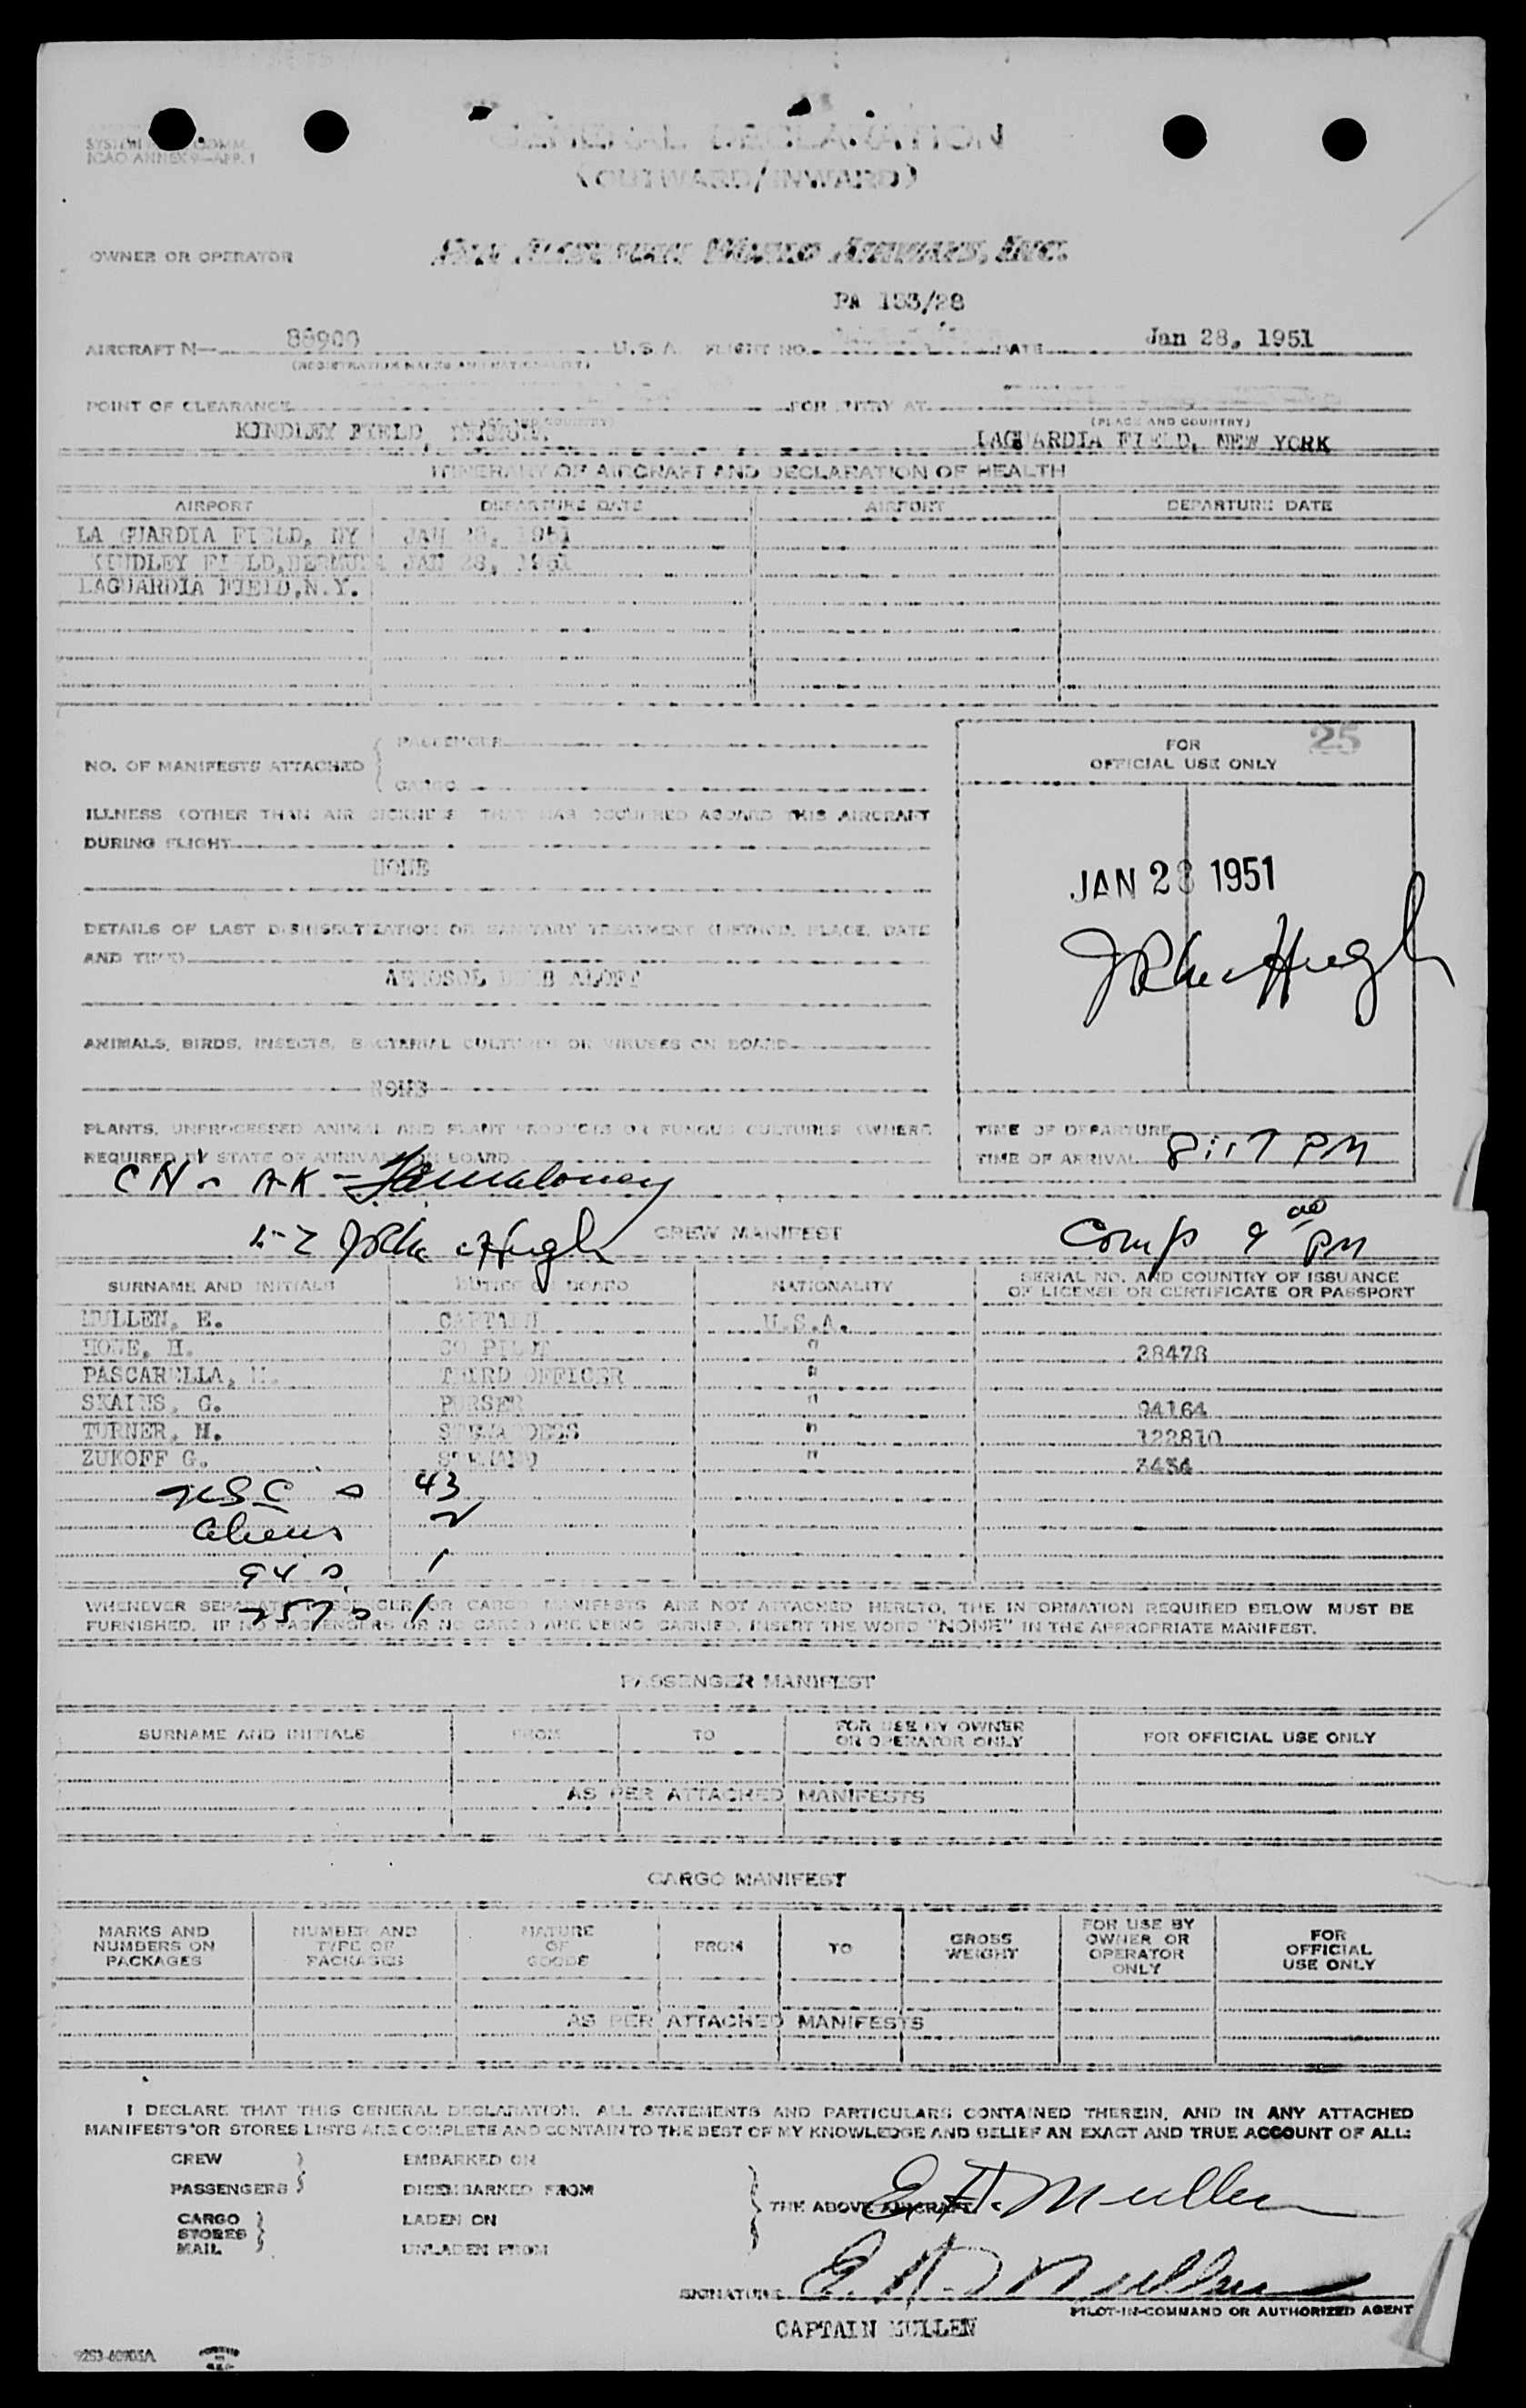 GENERAL DECLARATION
(OUTWARD/INWARD)
ICAO ANNEX 9—APP. 1
OWNER OR OPERATOR PAN AMERICAN WORLD AIRWAYS, INC.
PA 153/28
AIRCRAFT N— 88900 U.S.A. FLIGHT NO. DATE Jan 28, 1951
(REGISTRATION MARKS AND NATIONALITY)
POINT OF CLEARANCE FOR ENTRY AT
(PLACE AND COUNTRY) (PLACE AND COUNTRY)
KINDLEY FIELD, LAGUARDIA FIELD, NEW YORK
ITINERARY OF AIRCRAFT AND DECLARATION OF HEALTH
AIRPORT DEPARTURE DATE AIRPORT DEPARTURE DATE
LA GUARDIA FIELD, NY JAN 28, 1951
KINDLEY FIELD, BERMUDA JAN 28, 1951
LAGUARDIA FIELD, N.Y.
NO. OF MANIFESTS ATTACHED { PASSENGER
CARGO
FOR
OFFICIAL USE ONLY
25
ILLNESS (OTHER THAN AIR SICKNESS) THAT HAS OCCURRED ABOARD THIS AIRCRAFT
DURING FLIGHT
NONE
JAN 28 1951
DETAILS OF LAST DISINSECTIZATION OR SANITARY TREATMENT (METHOD, PLACE, DATE
AND TIME)
AEROSOL BOMB ALOFT
ANIMALS, BIRDS, INSECTS, BACTERIAL CULTURES OR VIRUSES ON BOARD
NONE
PLANTS, UNPROCESSED ANIMAL AND PLANT PRODUCTS OR FUNGUS CULTURES (WHERE
REQUIRED BY STATE OF ARRIVAL) ON BOARD
TIME OF DEPARTURE
TIME OF ARRIVAL 8:17 PM
CREW MANIFEST
Comp 9 00 PM
SURNAME AND INITIALS DUTIES ON BOARD NATIONALITY SERIAL NO. AND COUNTRY OF ISSUANCE
OF LICENSE OR CERTIFICATE OR PASSPORT
MULLEN, E. CAPTAIN U.S.A.
HOWE, H. CO PILOT " 28478
PASCARELLA, M. THIRD OFFICER "
SKAINS, G. PURSER " 94164
TURNER, M. STEWARDESS " 122810
ZUKOFF G. STEWARD " 3434
USC s 43
aliens 2
94 s 1
257 s 1
WHENEVER SEPARATE PASSENGER OR CARGO MANIFESTS ARE NOT ATTACHED HERETO, THE INFORMATION REQUIRED BELOW MUST BE
FURNISHED. IF NO PASSENGERS OR NO CARGO ARE BEING CARRIED, INSERT THE WORD "NONE" IN THE APPROPRIATE MANIFEST.
PASSENGER MANIFEST
SURNAME AND INITIALS FROM TO FOR USE BY OWNER
OR OPERATOR ONLY FOR OFFICIAL USE ONLY
AS PER ATTACHED MANIFESTS
CARGO MANIFEST
MARKS AND
NUMBERS ON
PACKAGES
NUMBER AND
TYPE OF
PACKAGES
NATURE
OF
GOODS
FROM
TO
GROSS
WEIGHT
FOR USE BY
OWNER OR
OPERATOR
ONLY
FOR
OFFICIAL
USE ONLY
AS PER ATTACHED MANIFESTS
I DECLARE THAT THIS GENERAL DECLARATION, ALL STATEMENTS AND PARTICULARS CONTAINED THEREIN, AND IN ANY ATTACHED
MANIFESTS OR STORES LISTS ARE COMPLETE AND CONTAIN TO THE BEST OF MY KNOWLEDGE AND BELIEF AN EXACT AND TRUE ACCOUNT OF ALL:
CREW EMBARKED ON
PASSENGERS DISEMBARKED FROM
CARGO LADEN ON
STORES
MAIL UNLADEN FROM
THE ABOVE AIRCRAFT
E. H. Mullen
SIGNATURE E. H. Mullen
PILOT-IN-COMMAND OR AUTHORIZED AGENT
CAPTAIN MULLEN